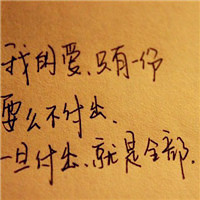 我的爱,只有一份
要么不付出.
一旦付出.就是全部.